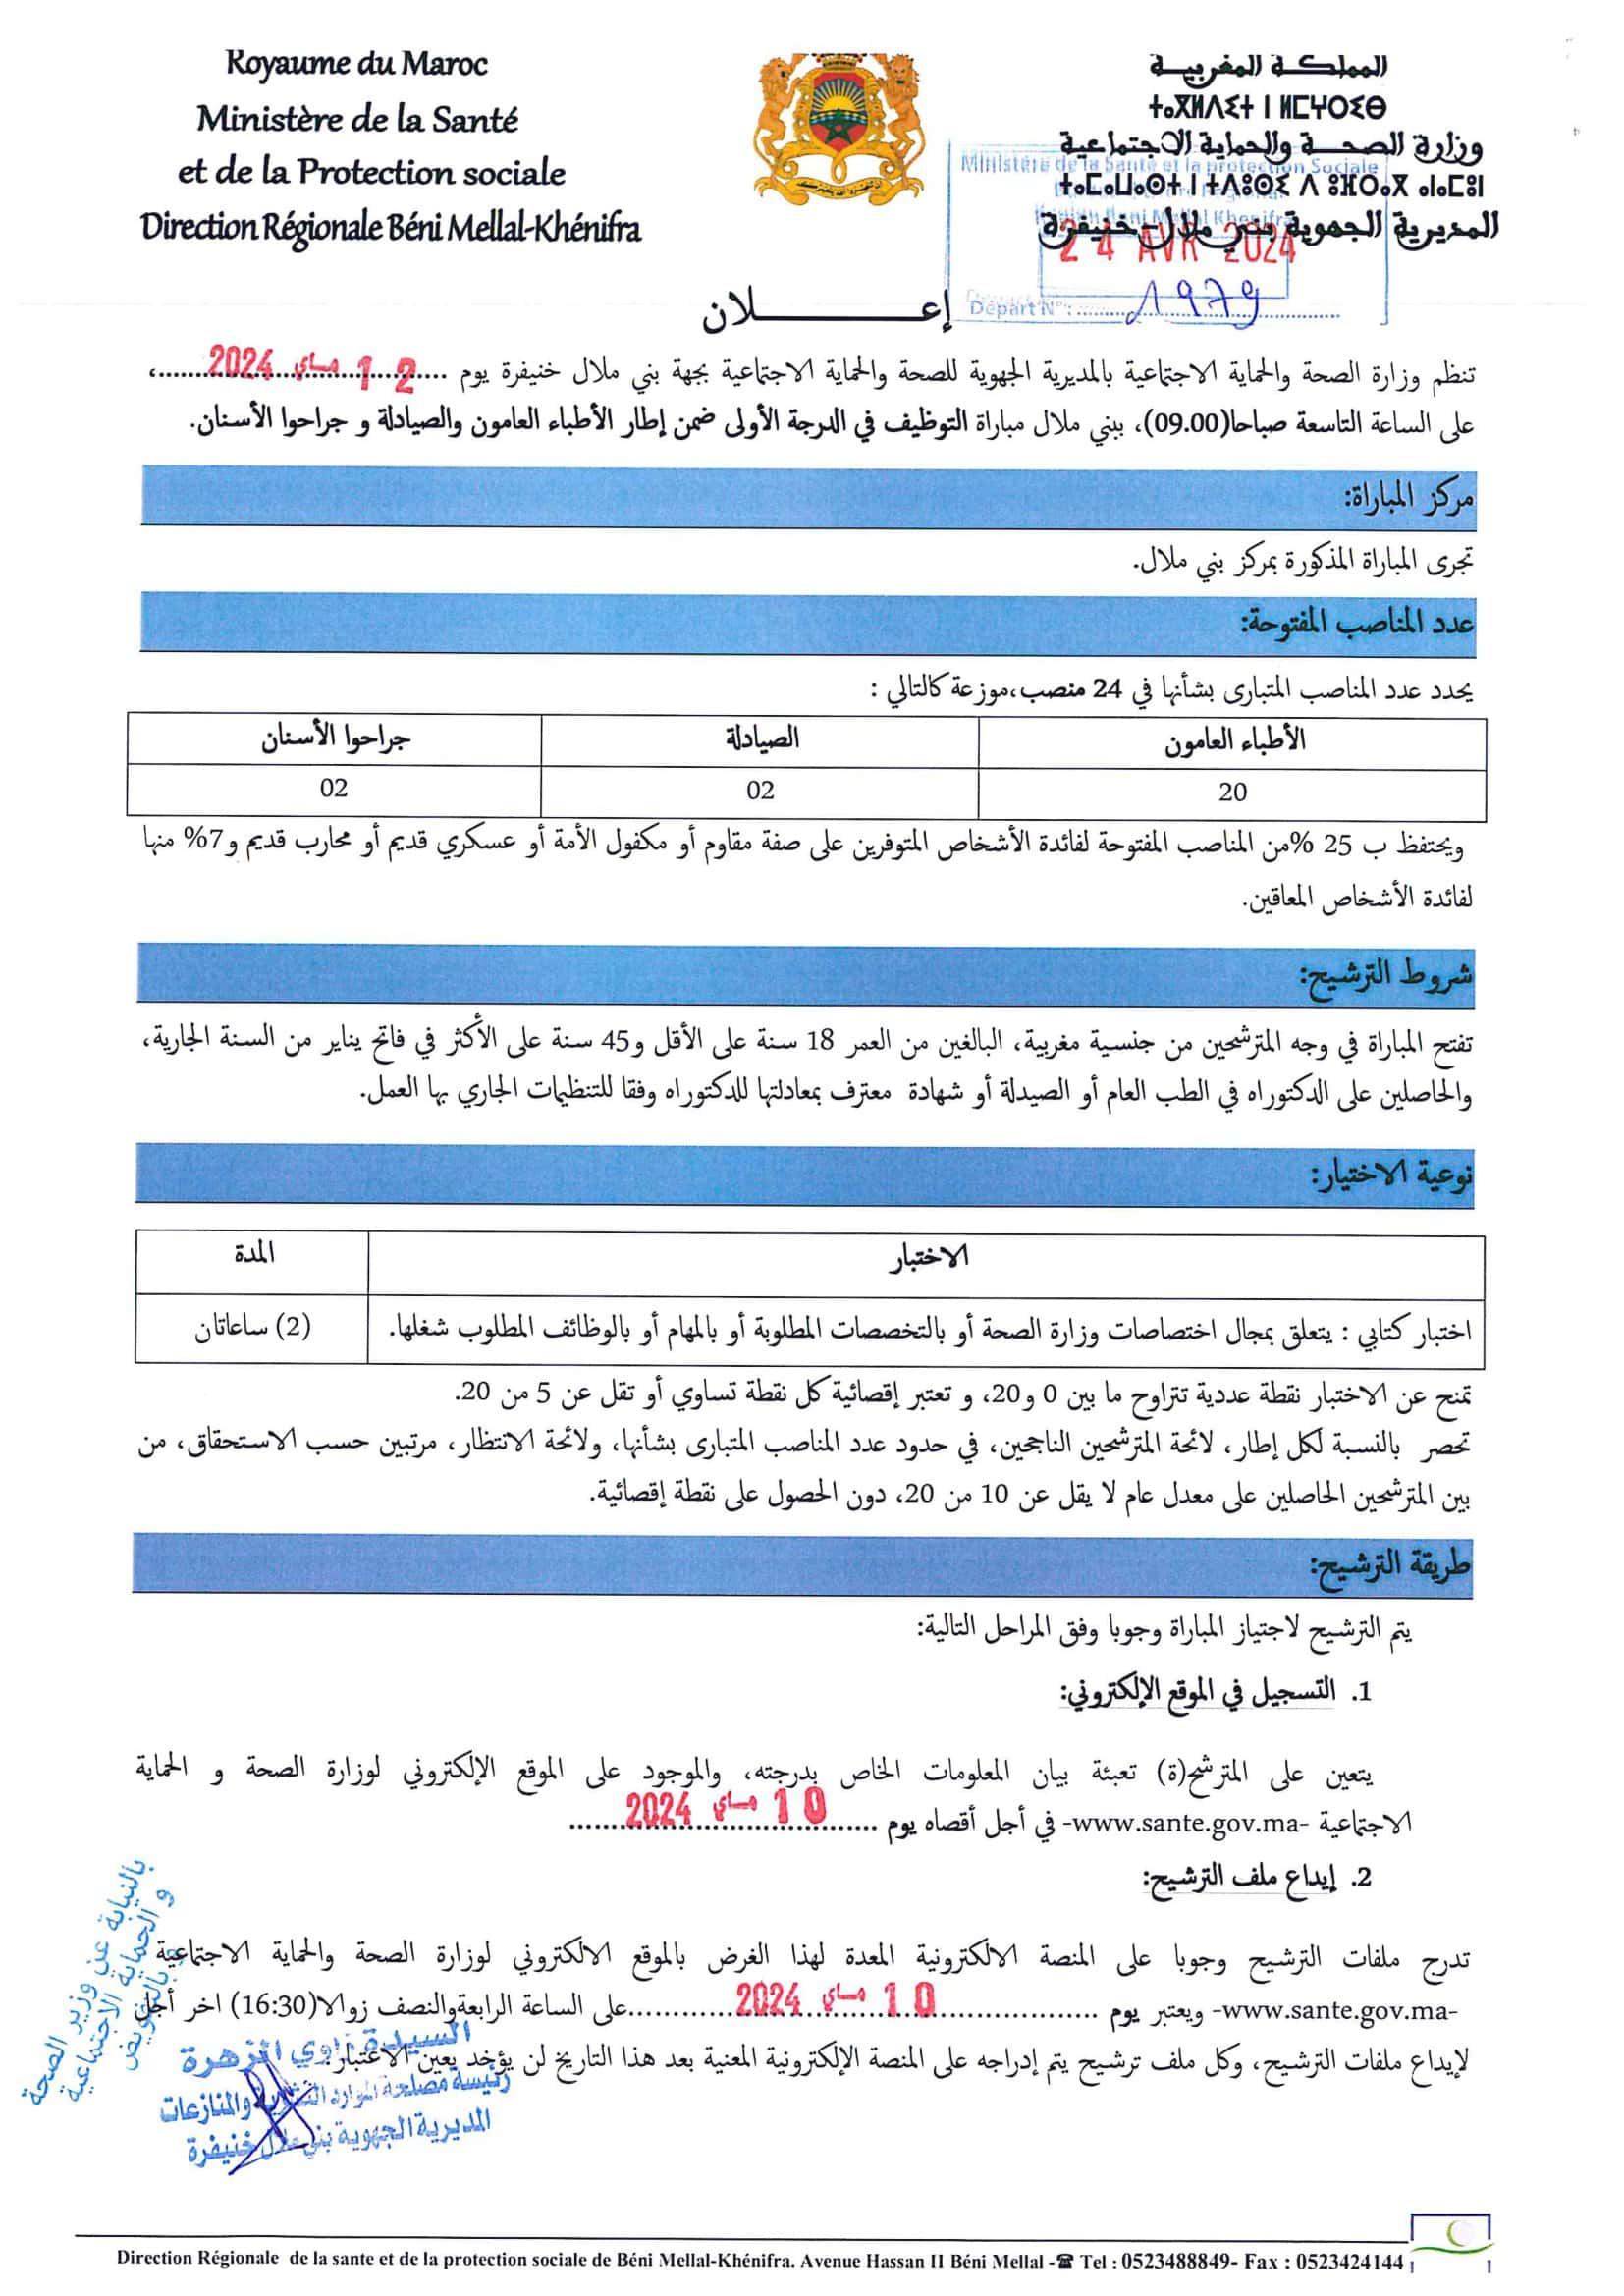 Royaume du Maroc
Ministère de la Santé
et de la Protection sociale
Direction Régionale Béni Mellal-Khénifra
المملكة المغربية
ⵜⴰⴳⵍⴷⵉⵜ ⵏ ⵍⵎⵖⵔⵉⴱ
وزارة الصحة والحماية الاجتماعية
ⵜⴰⵎⴰⵡⴰⵙⵜ ⵏ ⵜⴷⵓⵙⵉ ⴷ ⵓⴼⵔⴰⴳ ⴰⵏⴰⵎⵓⵏ
المديرية الجهوية بني ملال-خنيفرة
Ministère de la Santé et la protection Sociale
Région Béni Mellal Khenifra
24 AVR 2024
Départ N° : 1979
إعلان
تنظم وزارة الصحة والحماية الاجتماعية بالمديرية الجهوية للصحة والحماية الاجتماعية بجهة بني ملال خنيفرة يوم 12 ماي 2024،
على الساعة التاسعة صباحا(09.00)، ببني ملال مباراة التوظيف في الدرجة الأولى ضمن إطار الأطباء العامون والصيادلة و جراحوا الأسنان.
مركز المباراة:
تجرى المباراة المذكورة بمركز بني ملال.
عدد المناصب المفتوحة:
يحدد عدد المناصب المتبارى بشأنها في 24 منصب،موزعة كالتالي :
الأطباء العامون الصيادلة جراحوا الأسنان
20 02 02
ويحتفظ ب 25 %من المناصب المفتوحة لفائدة الأشخاص المتوفرين على صفة مقاوم أو مكفول الأمة أو عسكري قديم أو محارب قديم و7% منها
لفائدة الأشخاص المعاقين.
شروط الترشيح:
تفتح المباراة في وجه المترشحين من جنسية مغربية، البالغين من العمر 18 سنة على الأقل و45 سنة على الأكثر في فاتح يناير من السنة الجارية،
والحاصلين على الدكتوراه في الطب العام أو الصيدلة أو شهادة معترف بمعادلتها للدكتوراه وفقا للتنظيمات الجاري بها العمل.
نوعية الاختيار:
الاختبار المدة
اختبار كتابي : يتعلق بمجال اختصاصات وزارة الصحة أو بالتخصصات المطلوبة أو بالمهام أو بالوظائف المطلوب شغلها. (2) ساعاتان
تمنح عن الاختبار نقطة عددية تتراوح ما بين 0 و20، و تعتبر إقصائية كل نقطة تساوي أو تقل عن 5 من 20.
تحصر بالنسبة لكل إطار، لائحة المترشحين الناجحين، في حدود عدد المناصب المتبارى بشأنها، ولائحة الانتظار، مرتبين حسب الاستحقاق، من
بين المترشحين الحاصلين على معدل عام لا يقل عن 10 من 20، دون الحصول على نقطة إقصائية.
طريقة الترشيح:
يتم الترشيح لاجتياز المباراة وجوبا وفق المراحل التالية:
1. التسجيل في الموقع الإلكتروني:
يتعين على المترشح(ة) تعبئة بيان المعلومات الخاص بدرجته، والموجود على الموقع الإلكتروني لوزارة الصحة و الحماية
الاجتماعية -www.sante.gov.ma- في أجل أقصاه يوم 10 ماي 2024
2. إيداع ملف الترشيح:
تدرج ملفات الترشيح وجوبا على المنصة الالكترونية المعدة لهذا الغرض بالموقع الالكتروني لوزارة الصحة والحماية الاجتماعية
-www.sante.gov.ma- ويعتبر يوم 10 ماي 2024 على الساعة الرابعةوالنصف زوالا(16:30) اخر أجل
لإيداع ملفات الترشيح، وكل ملف ترشيح يتم إدراجه على المنصة الإلكترونية المعنية بعد هذا التاريخ لن يؤخد بعين الاعتبار.
بالنيابة عن وزير الصحة
و الحماية الاجتماعية
و بالتفويض
السيدة زاوي الزهرة
رئيسة مصلحة الموارد البشرية والمنازعات
المديرية الجهوية بني ملال خنيفرة
Direction Régionale de la sante et de la protection sociale de Béni Mellal-Khénifra. Avenue Hassan II Béni Mellal -☎ Tel : 0523488849- Fax : 0523424144